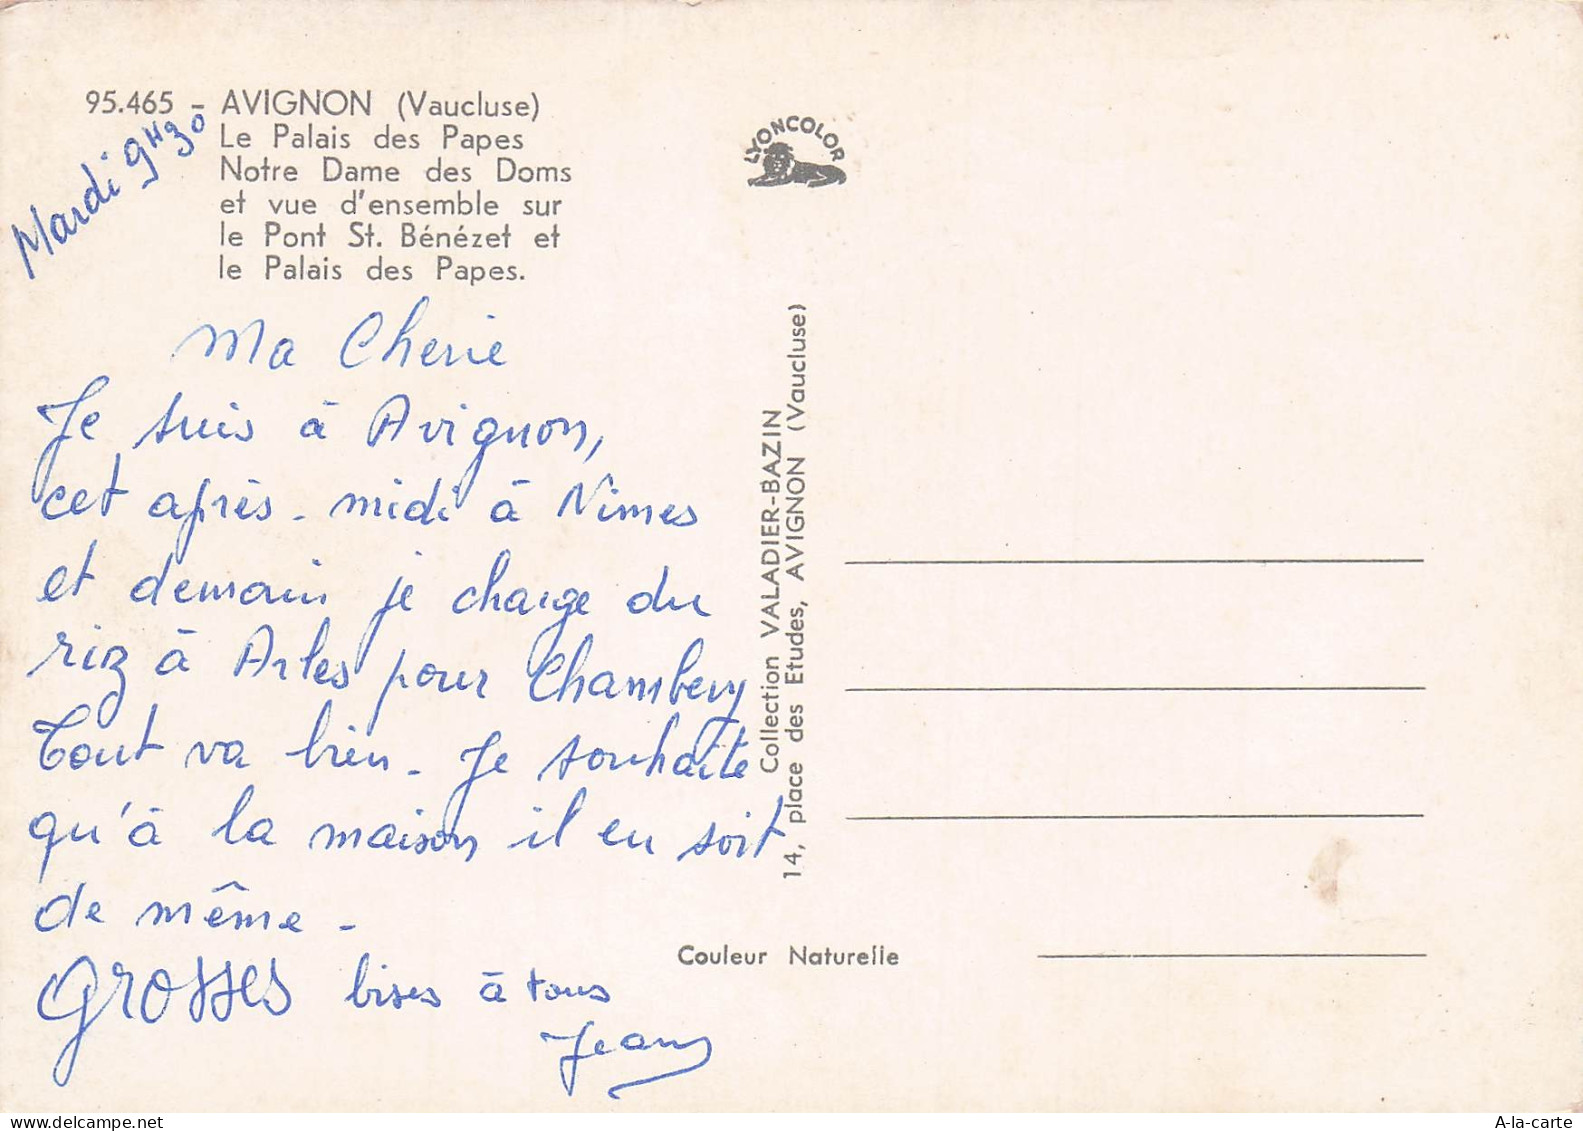 95.465 - AVIGNON (Vaucluse)
Le Palais des Papes
Notre Dame des Doms
et vue d'ensemble sur
le Pont St. Bénézet et
le Palais des Papes.
Mardi 9H30
Ma Cherie
Je suis à Avignon,
cet après-midi à Nimes
et demain je charge du
riz à Arles pour Chambery
Tout va bien - Je souhaite
qu'à la maison il en soit
de même -
GROSSES bises à tous
Jean
LYONCOLOR
Collection VALADIER-BAZIN
14, place des Etudes, AVIGNON (Vaucluse)
Couleur Naturelle
A-la-carte
www.delcampe.net